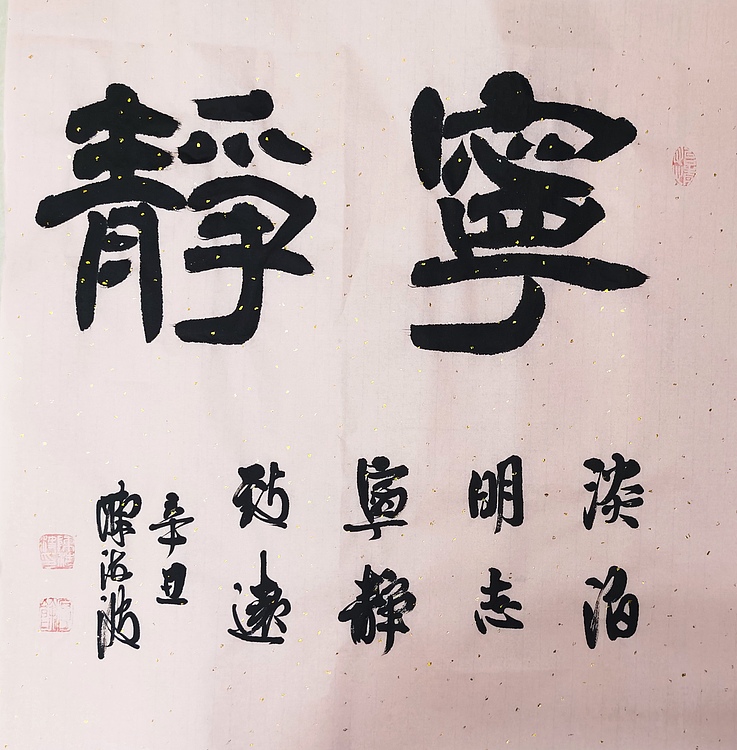 寧靜
淡泊
明志
寧靜
致遠
辛丑
海波